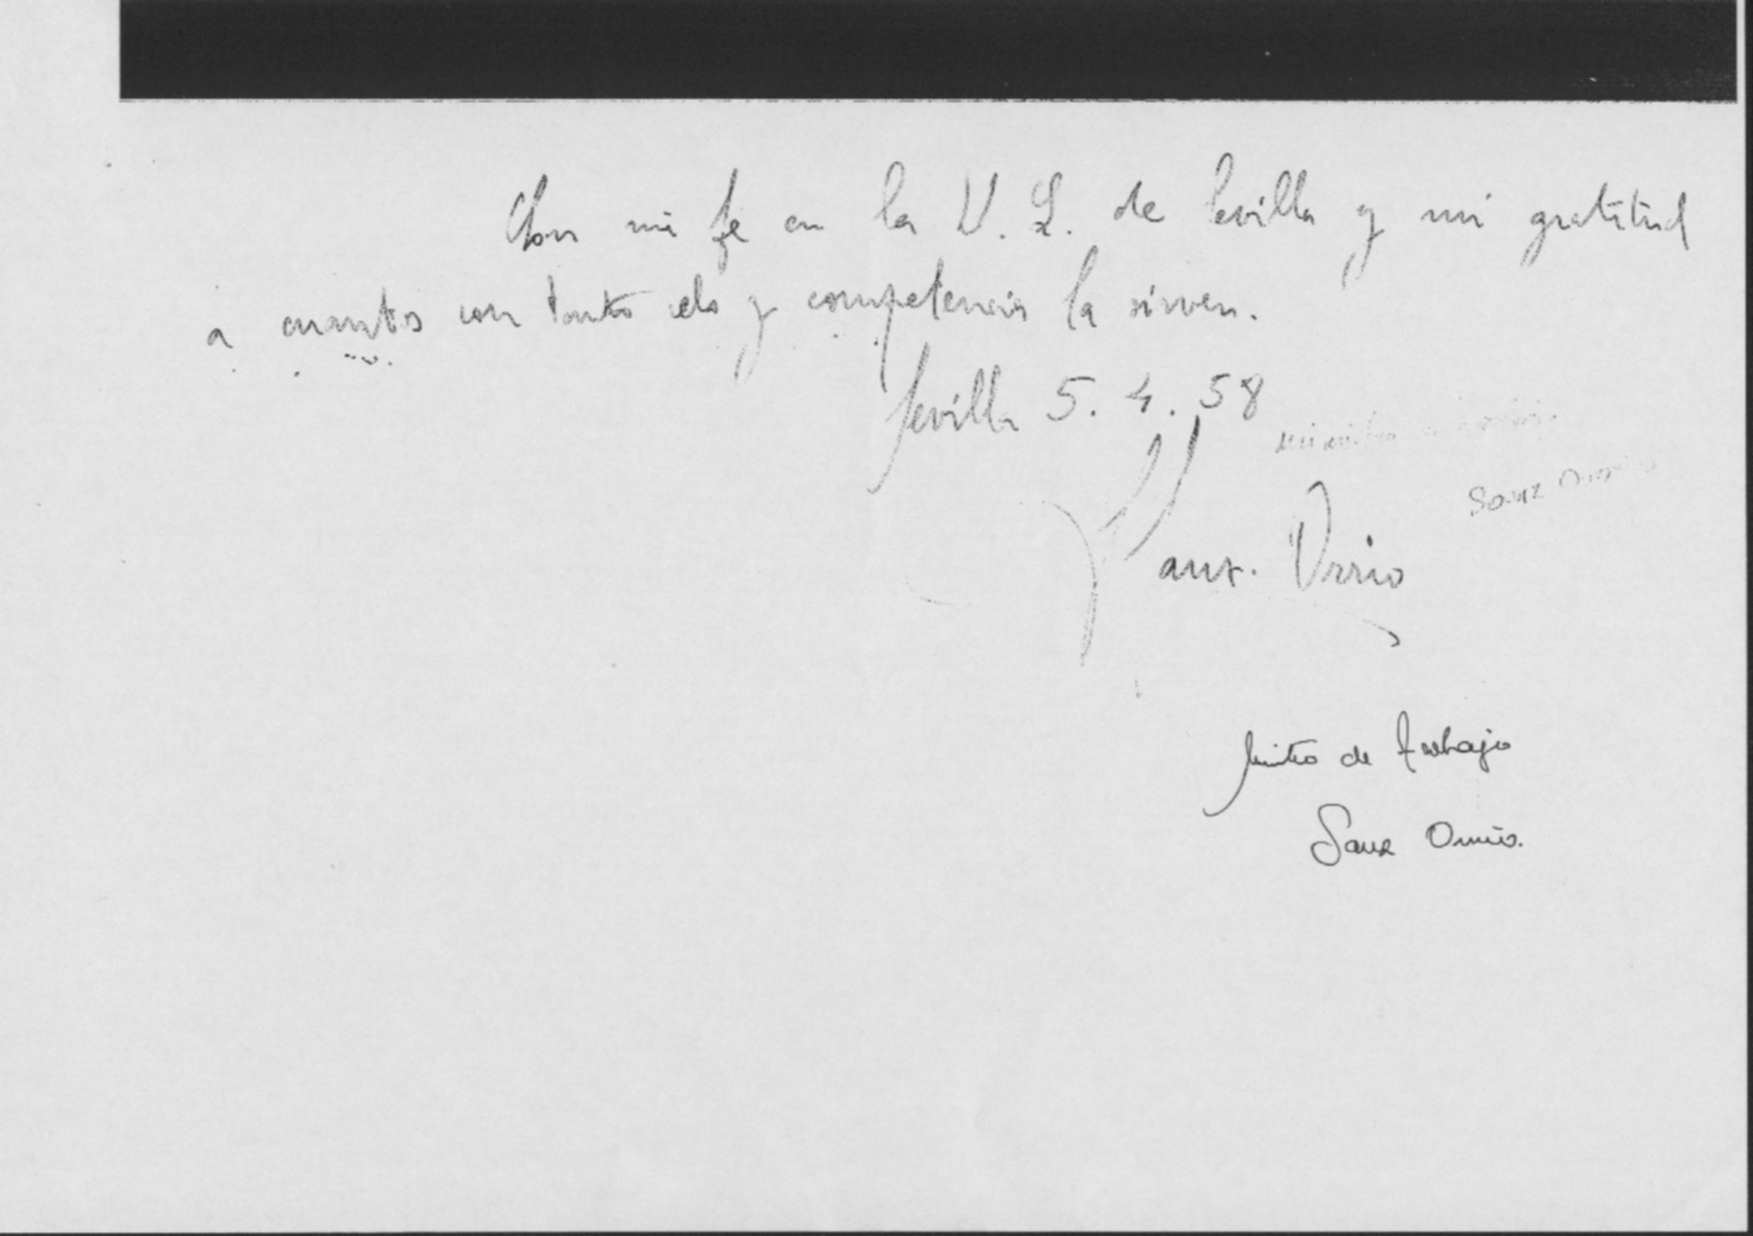 Con mi fe en la U. L. de Sevilla y mi gratitud
a cuantos con tanto celo y competencia la sirven.
Sevilla 5. 4. 58
Sanz Orrio
Mtro de Trabajo
Sanz Orrio.